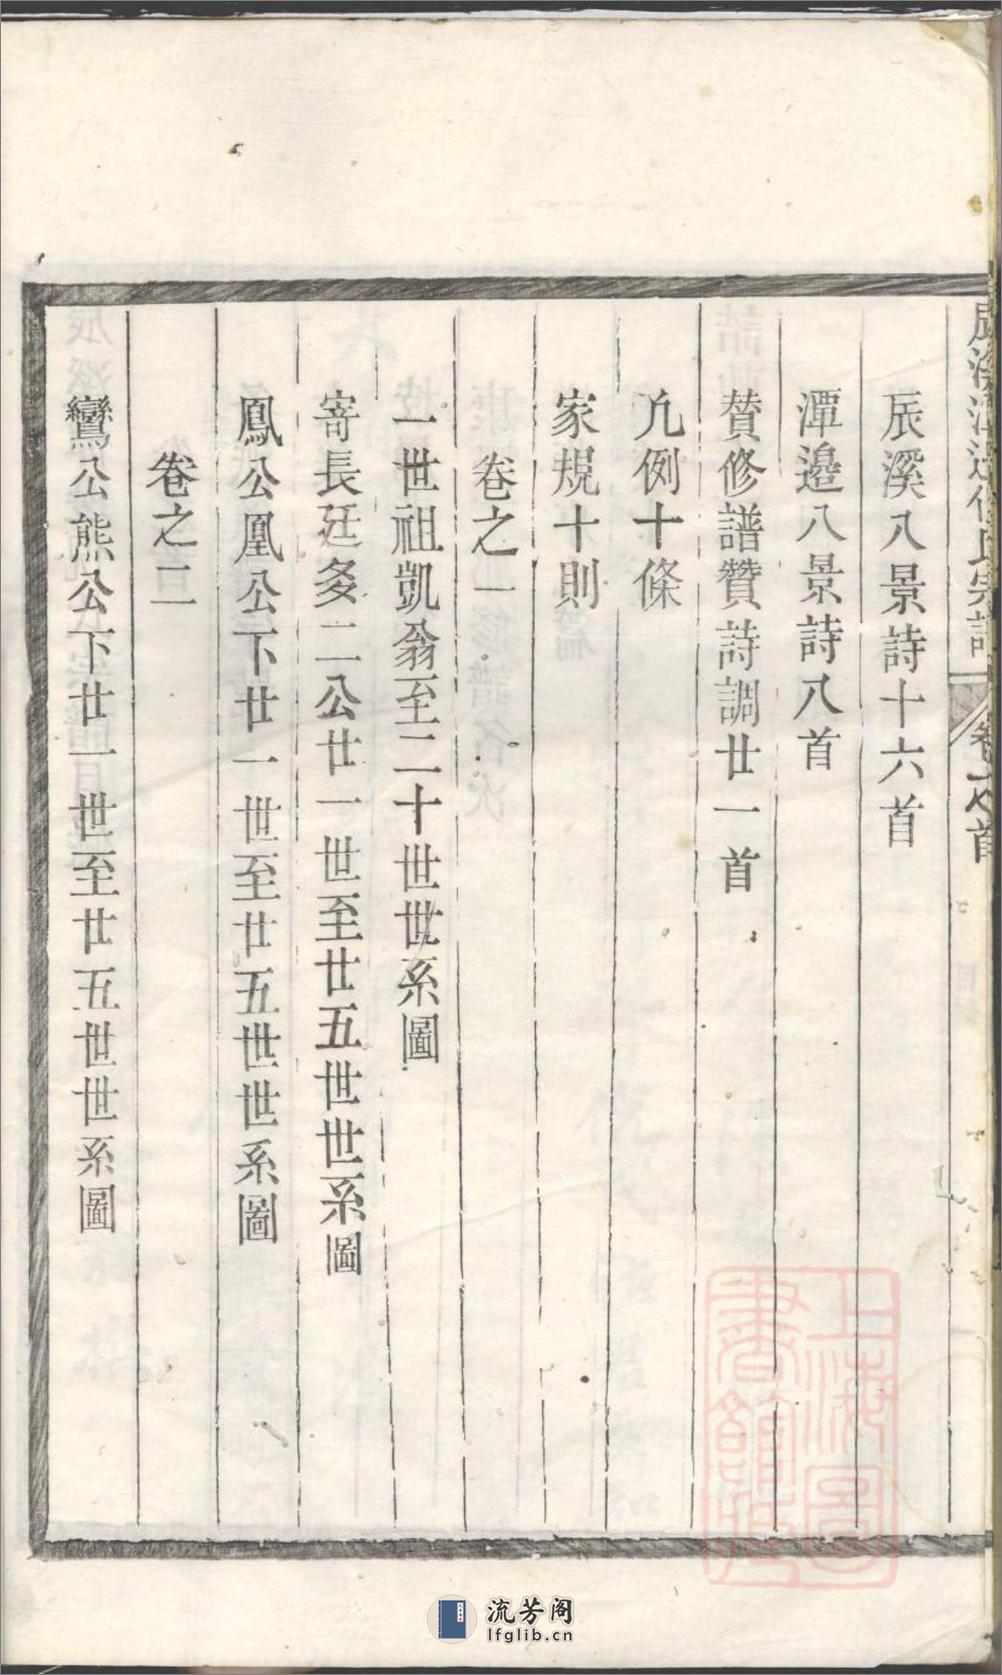 辰溪八景詩十六首
潭邉八景詩八首
賛修譜贊詩調廿一首
凢例十條
家規十則
卷之一
一世祖凱翁至二十世世系圖
寄長廷夋二公廿一世至廿五世世系圖
鳳公凰公下廿一世至廿五世世系圖
卷之二
鸞公熊公下廿一世至廿五世世系圖
上海圖
書館藏
流芳阁
lfglib.cn